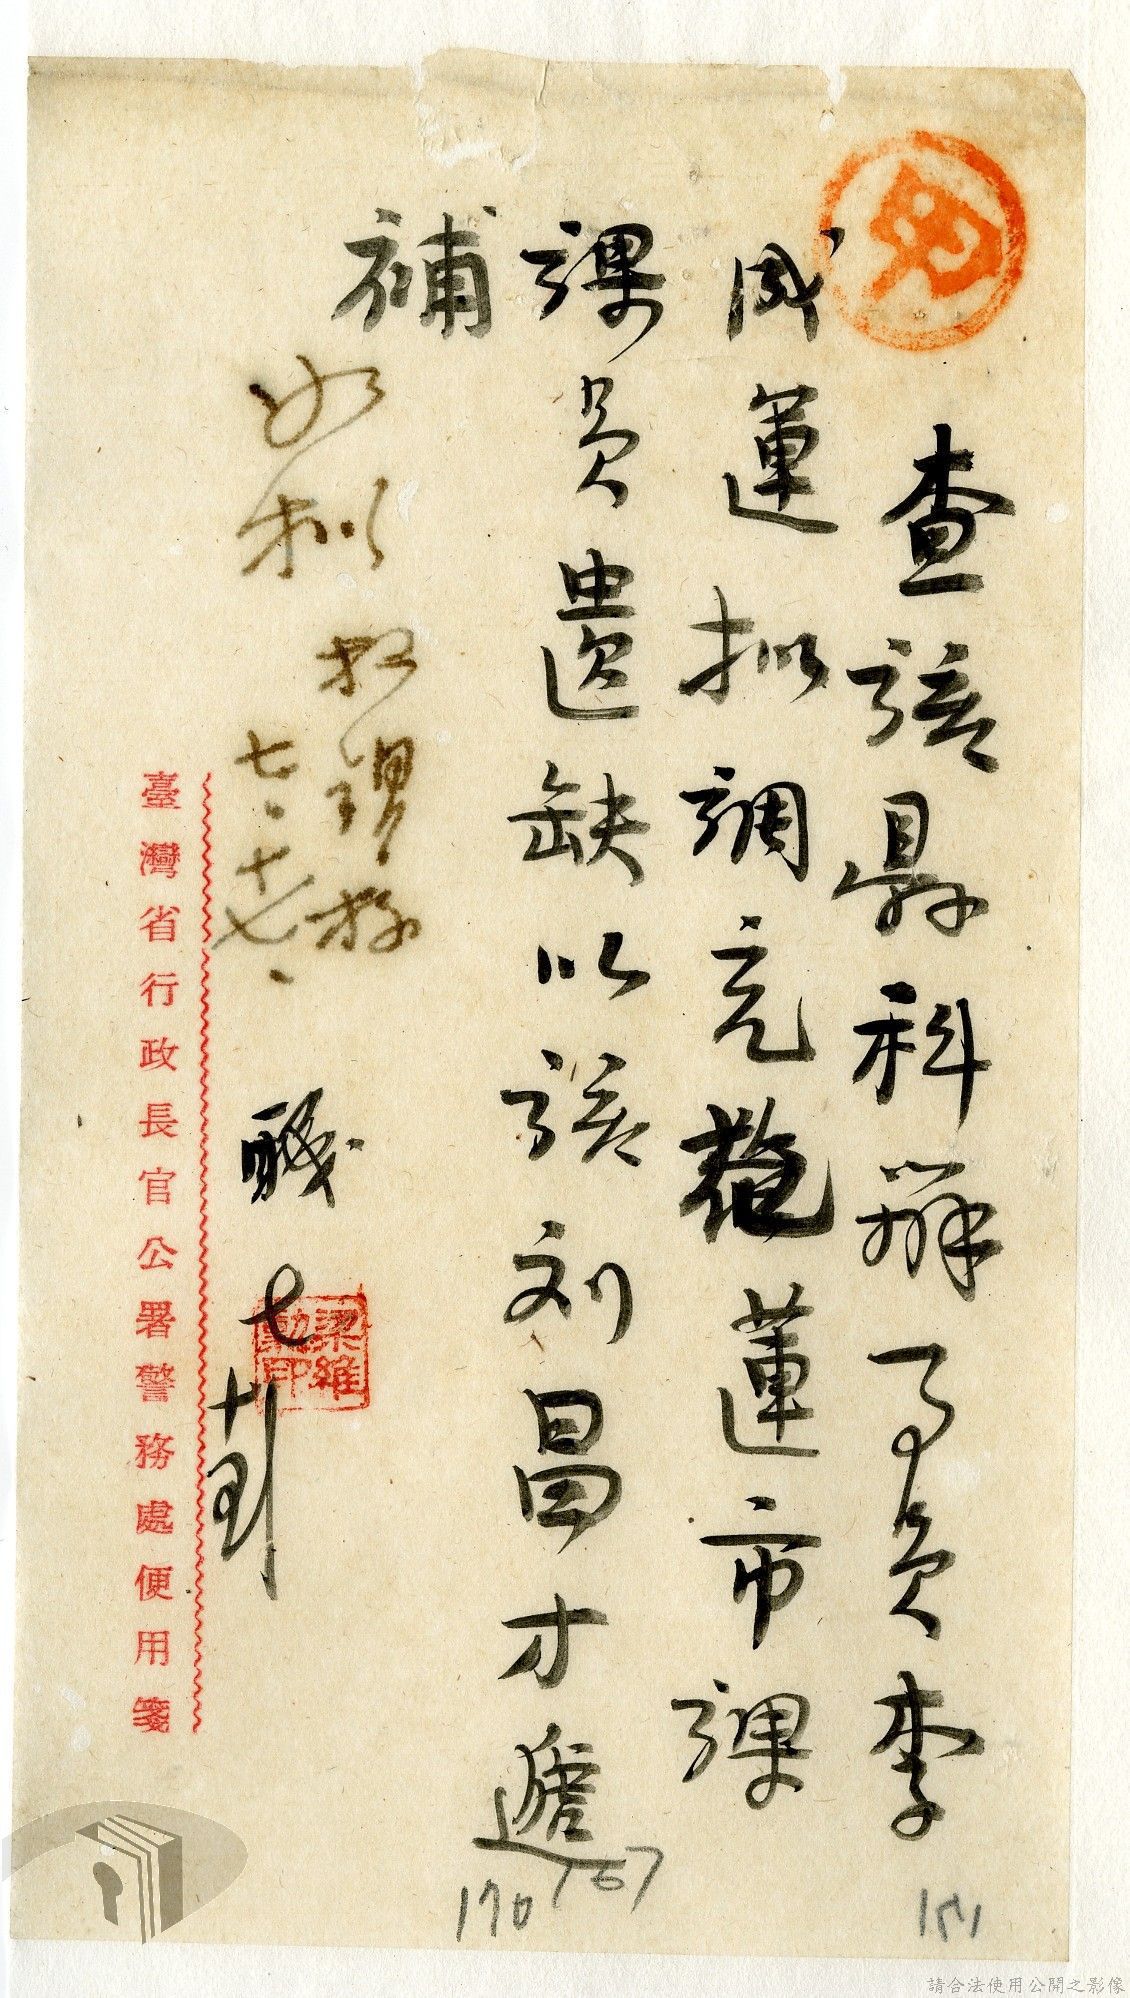 查該縣科辦事員李
成運拟調充花蓮市課
課員遺缺以該刘昌才遞
補
如拟
七、十七、
職
七
梁維
印
臺灣省行政長官公署警務處便用箋
167
170
151
請合法使用公開之影像